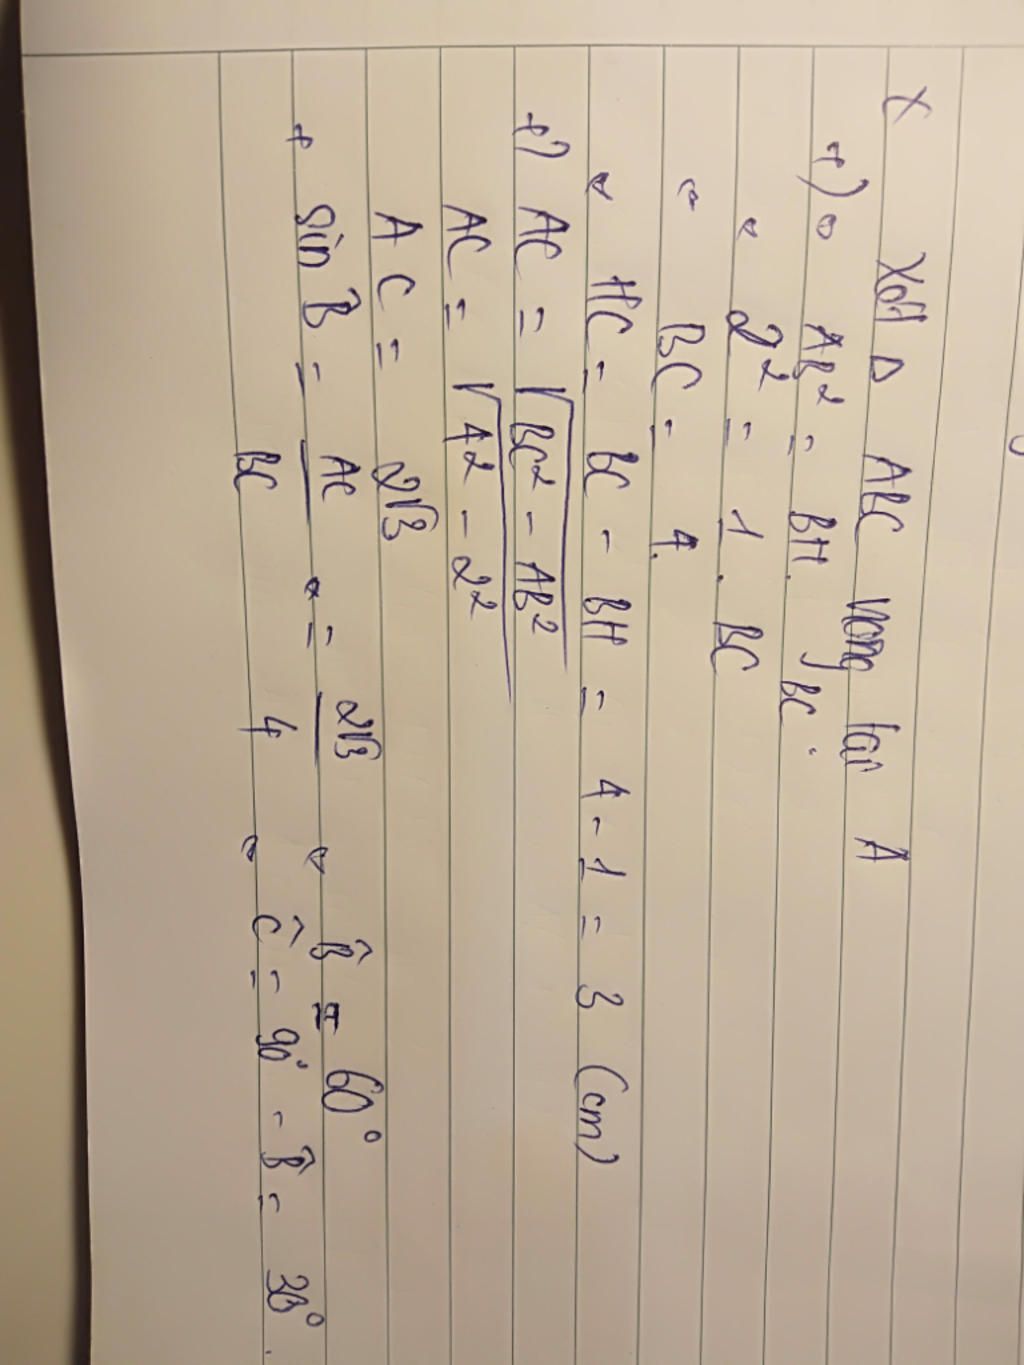 x Xét Δ ABC vuông tại A
+) • AB² = BH. BC.
• 2² = 1. BC
• BC = 4.
• HC = BC - BH = 4 - 1 = 3 (cm)
+) AC = √(BC² - AB²)
AC = √(4² - 2²)
AC = 2√3
+ sin B̂ = AC/BC = 2√3/4 • B̂ = 60°
• Ĉ = 90° - B̂ = 30°.